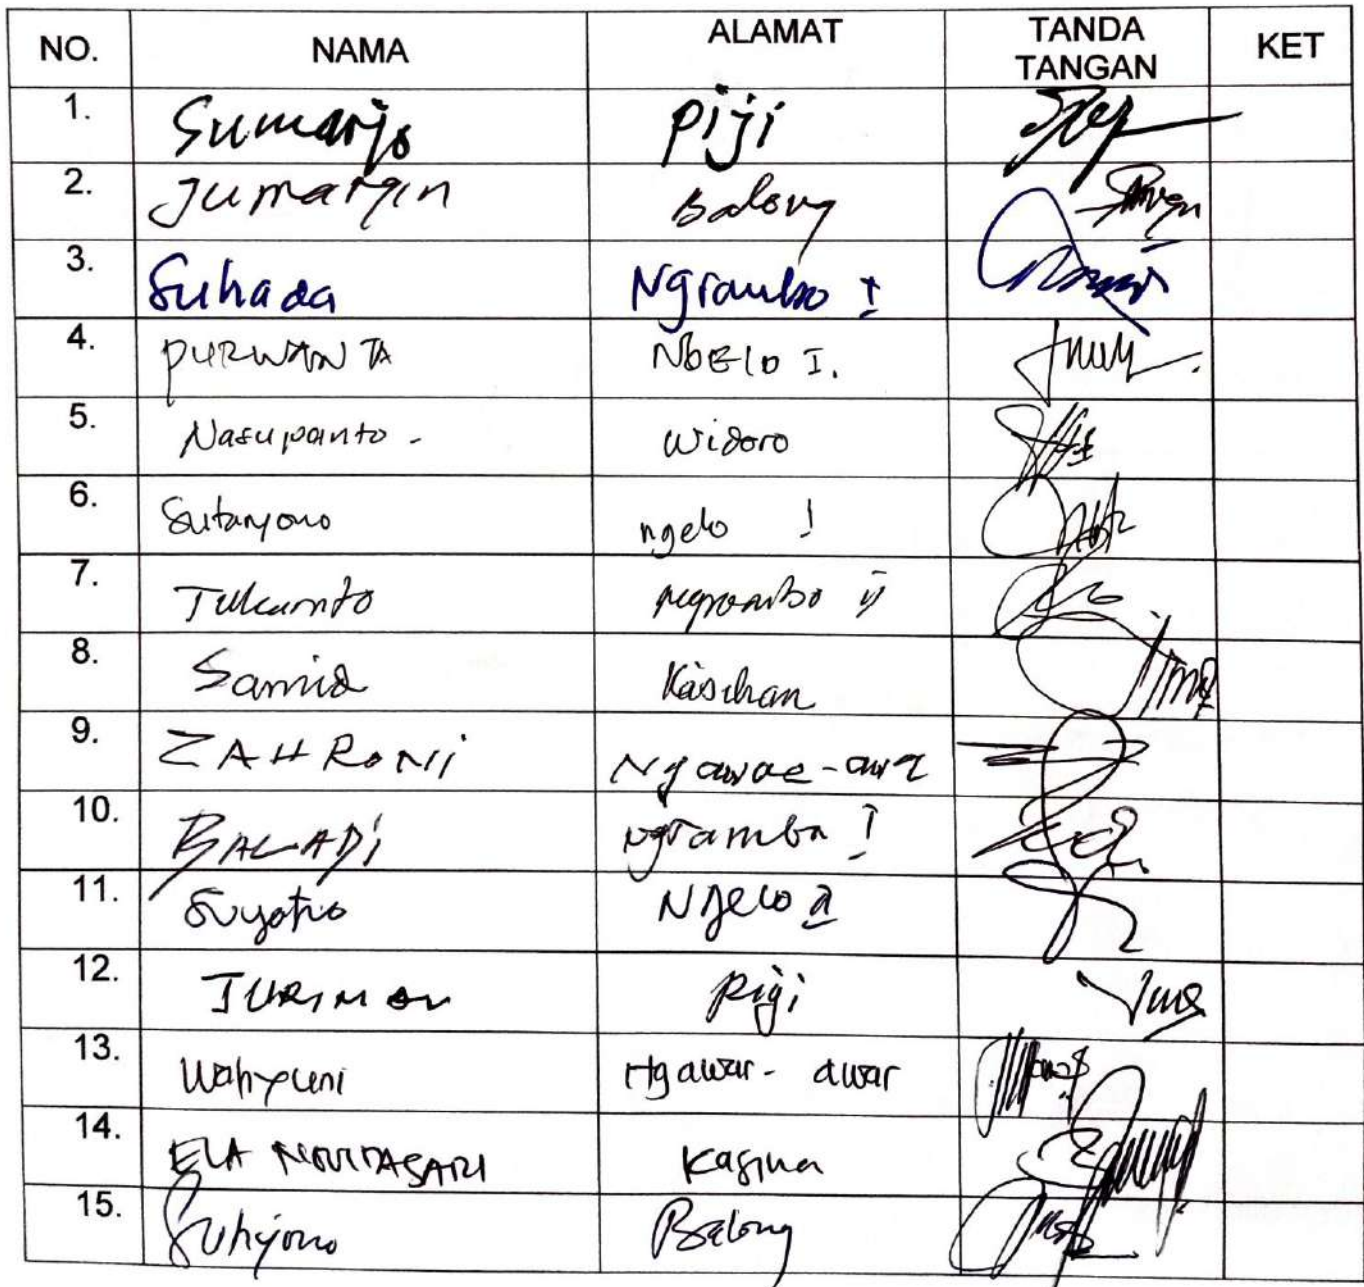 NO. NAMA ALAMAT TANDA TANGAN KET
1. Sumarjo Piji
2. Jumargin Balong
3. Suhada Ngrambo I
4. PURWANTA NGELO I.
5. Nasupanto - Widoro
6. Sutaryono ngelo I
7. Tukamto ngrambo II
8. Samid Kasihan
9. ZAHRONI Ngawar-awar
10. BALADI Ngrambo I
11. Suyatno Ngelo 2
12. JURIMAN Piji
13. Wahyuni Ngawar- awar
14. ELA NOVITASARI Kasihan
15. Suhiyono Balong